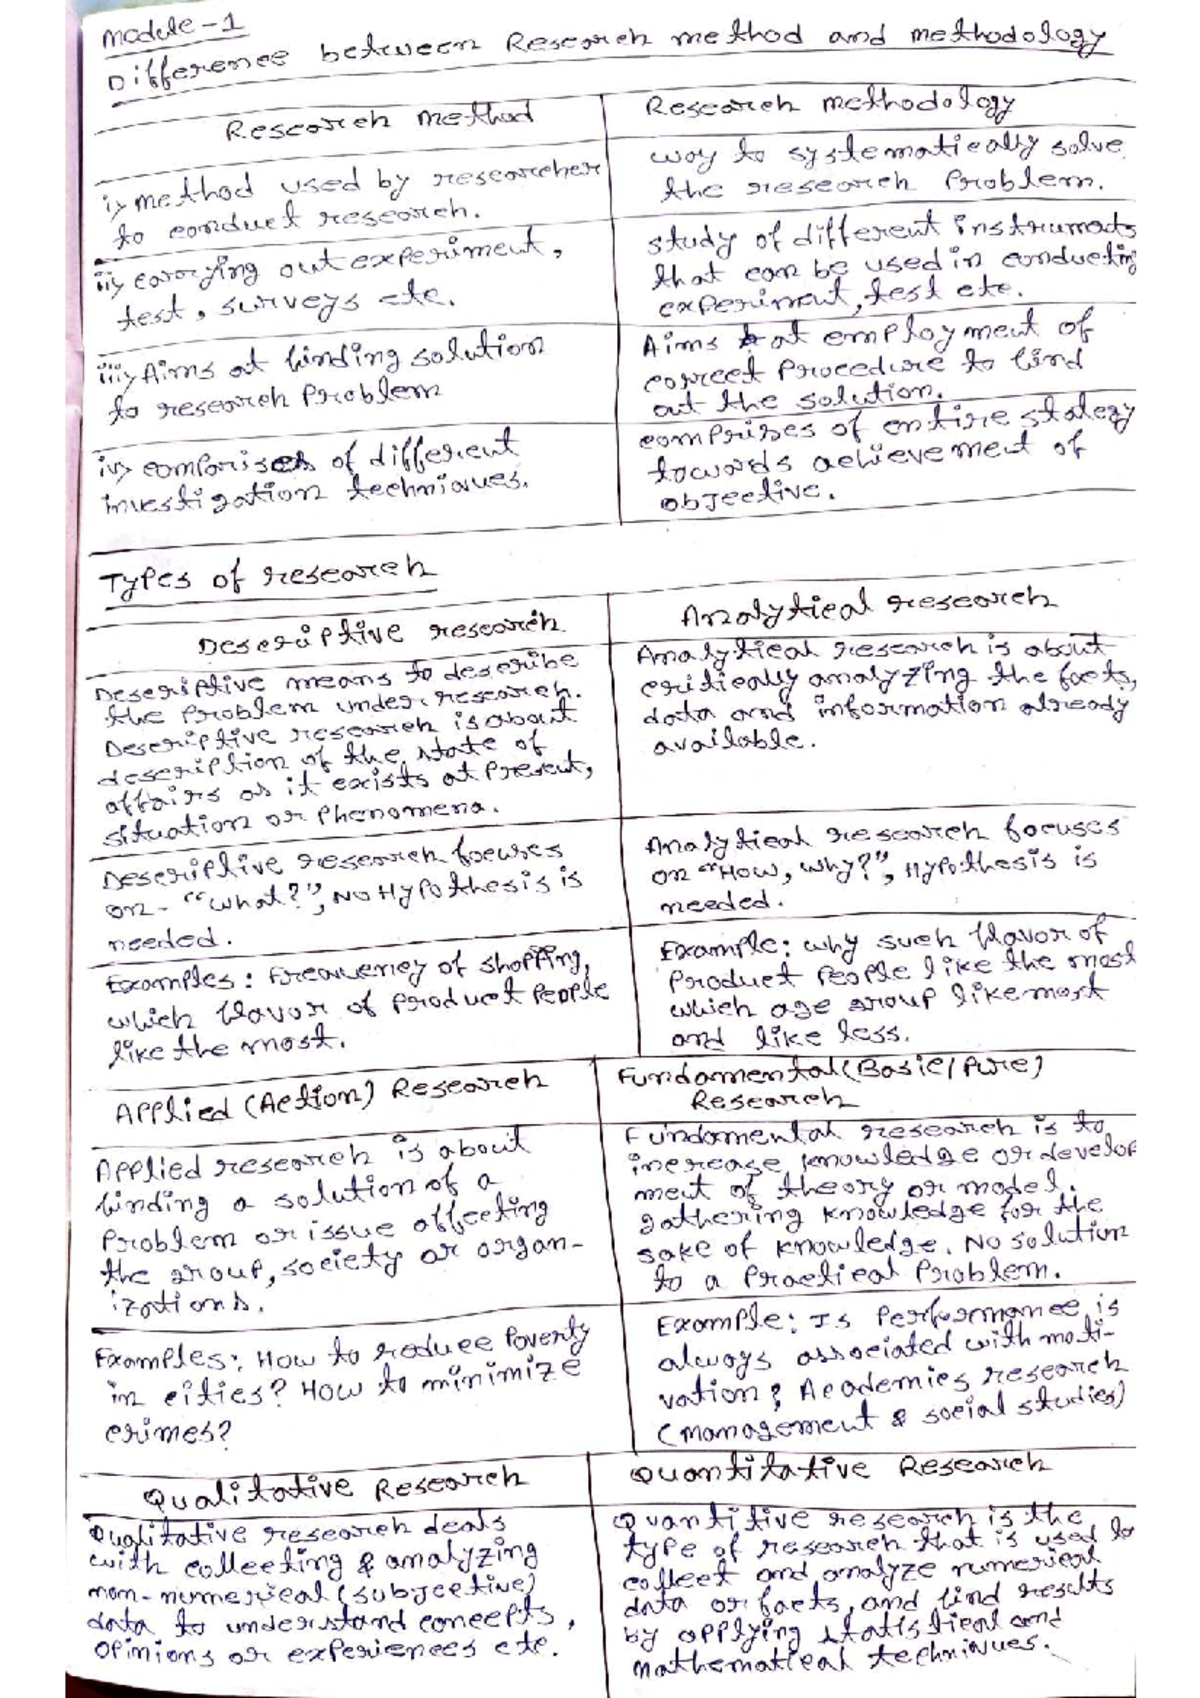 Module-1
Difference between Research method and methodology
Research method
i> method used by researcher
to conduct research.
ii> carrying out experiment,
test, surveys etc.
iii> Aims at finding solution
to research Problem
iv> comparises of different
investigation techniques.
Research methodology
way to systematically solve
the research Problem.
study of different instruments
that can be used in conducting
experiment, test etc.
Aims at employment of
correct Procedure to find
out the solution.
comprises of entire stategy
towards achievement of
objective.
Types of research
Descriptive research
Descriptive means to describe
the Problem under research.
Descriptive research is about
description of the state of
affairs as it exists at Present,
situation or Phenomena.
Descriptive research focuses
on- "what?", No Hypothesis is
needed.
Examples: Frequency of shopping,
which flavor of Product People
like the most.
Analytical research
Analytical research is about
critically analyzing the facts,
data and information already
available.
Analytical research focuses
on "How, why?", Hypothesis is
needed.
Example: why such flavor of
Product People like the most
which age group like most
and like less.
Applied (Action) Research
Applied research is about
finding a solution of a
Problem or issue affecting
the group, society or organ-
izations.
Examples: How to reduce Poverty
in cities? How to minimize
crimes?
Fundamental (Basic/Pure)
Research
Fundamental research is to
increase knowledge or develop
ment of theory or model.
gathering knowledge for the
sake of knowledge. No solution
to a Practical Problem.
Example: Is Performance is
always associated with moti-
vation? Academics research
(management & social studies)
Qualitative Research
Qualitative research deals
with collecting & analyzing
non-numerical (subjective)
data to understand concepts,
opinions or experiences etc.
Quantitative Research
Quantitive research is the
type of research that is used to
collect and analyze numerical
data or facts, and find results
by applying statistical and
mathematical techniques.